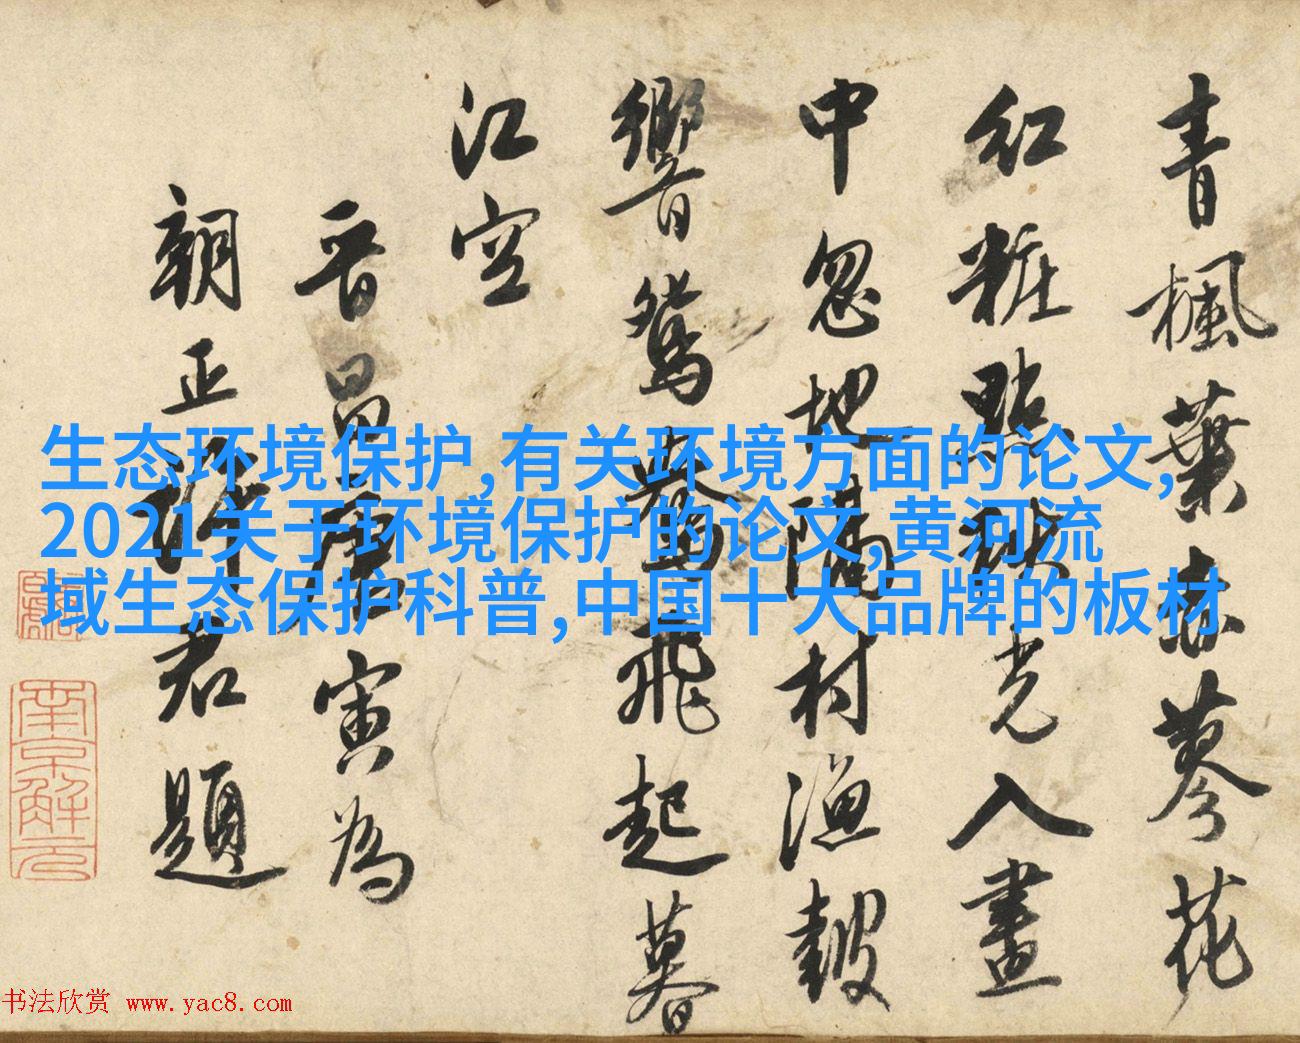 青楓葉赤蓼花
紅粧點秋光入畫
中忽地隔村漁皷
響鴛鴦飛起暮
江空
晋昌唐寅為
朝正君題
南京解元
生态环境保护,有关环境方面的论文,
2021关于环境保护的论文,黄河流
域生态保护科普,中国十大品牌的板材
书法欣赏 www.yac8.com